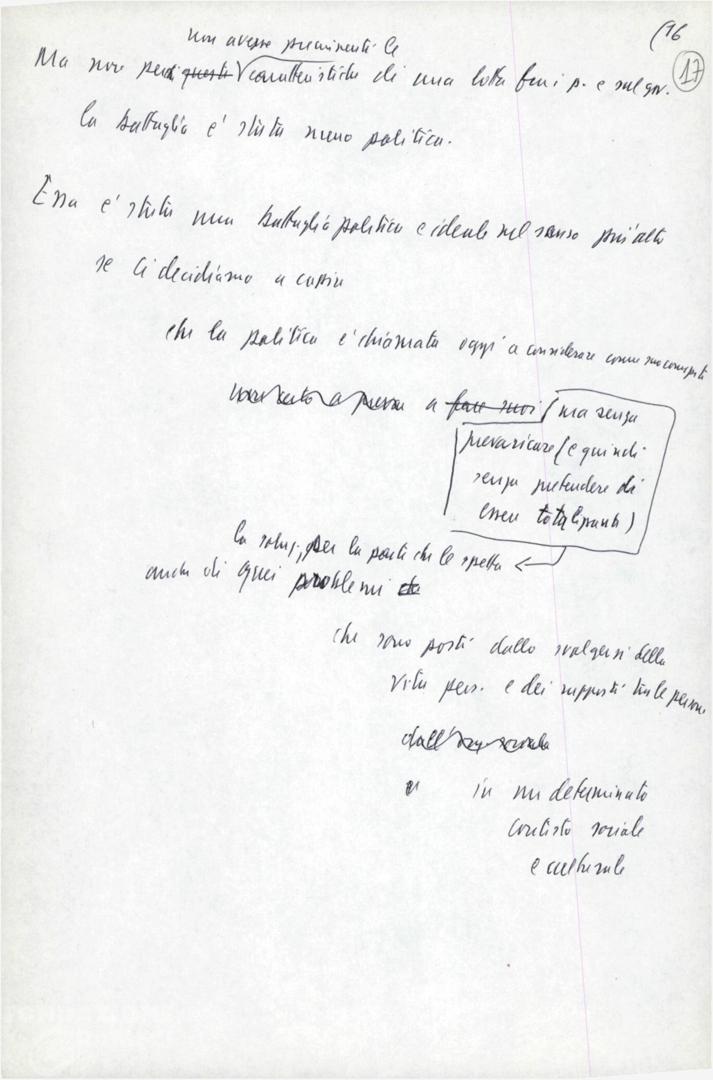 (16
17
non avesse preminenti le
Ma non però questo caratteristiche di una lotta fra i p. e sul gov.
la battaglia è stata meno politica.
Essa è stata una battaglia politica e ideale nel senso più alto
se ci decidiamo a capire
che la politica è chiamata oggi a considerare come suo compito
a fare suoi (ma senza
prevaricare (e quindi
senza pretendere di
essere totalizzanti)
la soluz., per la parte che le spetta
anche di quei problemi che
che sono posti dallo svolgersi della
vita pers. e dei rapporti tra le persone
in un determinato
contesto sociale
e culturale